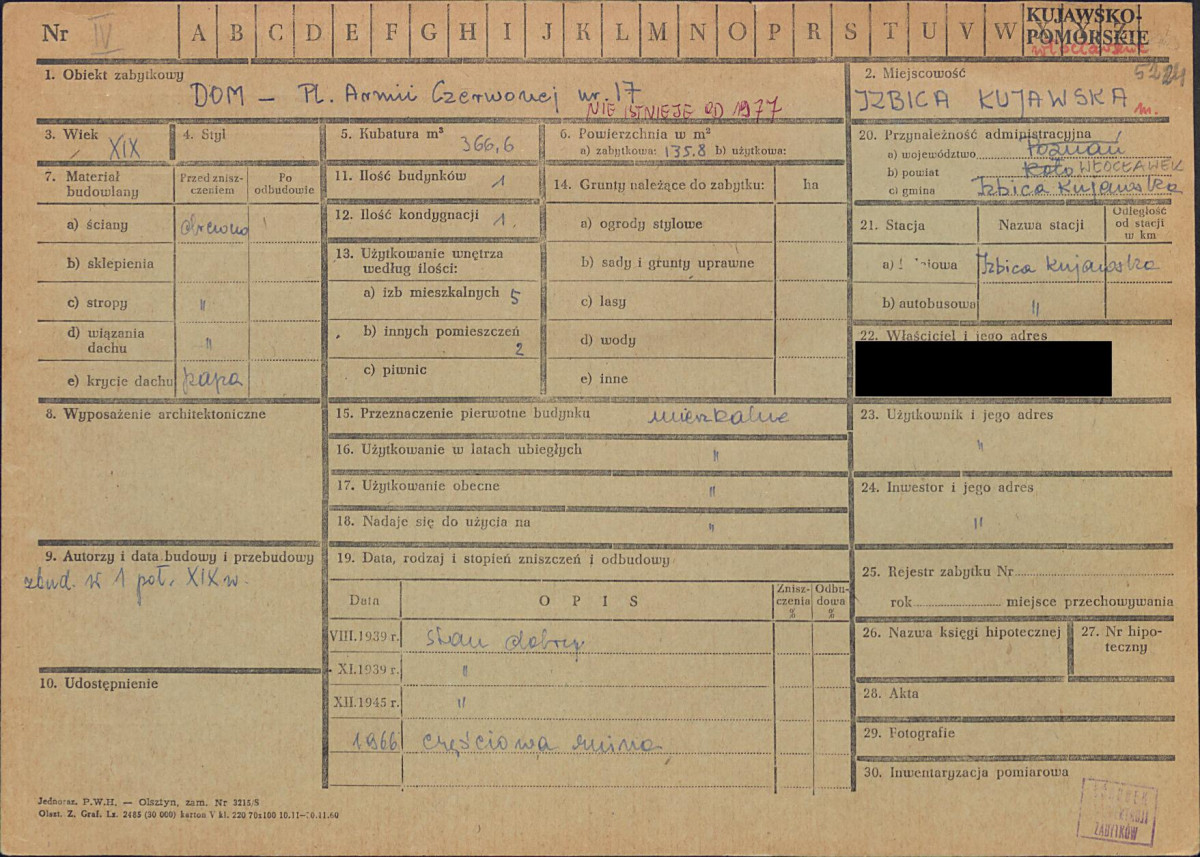 Nr IV A B C D E F G H I J K L M N O P R S T U V W
KUJAWSKO-
POMORSKIE
włocławskie
1. Obiekt zabytkowy
DOM – Pl. Armii Czerwonej nr. 17
NIE ISTNIEJE OD 1977
2. Miejscowość
IZBICA KUJAWSKA m.
3. Wiek XIX
4. Styl
5. Kubatura m³ 366,6
6. Powierzchnia w m²
a) zabytkowa: 135.8 b) użytkowa:
7. Materiał budowlany
Przed znisz-
czeniem
Po
odbudowie
a) ściany drewno
b) sklepienia
c) stropy "
d) wiązania
dachu "
e) krycie dachu papa
8. Wyposażenie architektoniczne
9. Autorzy i data budowy i przebudowy
zbud. w 1 poł. XIX w.
10. Udostępnienie
11. Ilość budynków 1
12. Ilość kondygnacji 1.
13. Użytkowanie wnętrza
według ilości:
a) izb mieszkalnych 5
b) innych pomieszczeń
2
c) piwnic
14. Grunty należące do zabytku: ha
a) ogrody stylowe
b) sady i grunty uprawne
c) lasy
d) wody
e) inne
15. Przeznaczenie pierwotne budynku mieszkalne
16. Użytkowanie w latach ubiegłych "
17. Użytkowanie obecne "
18. Nadaje się do użycia na "
19. Data, rodzaj i stopień zniszczeń i odbudowy
Data OPIS
Znisz-
czenia
%
Odbu-
dowa
%
VIII.1939 r. stan dobry
XI.1939 r. "
XII.1945 r. "
1966 częściowa ruina
20. Przynależność administracyjna
a) województwo Poznań
b) powiat Koło WŁOCŁAWEK
c) gmina Izbica Kujawska
21. Stacja Nazwa stacji
Odległość
od stacji
w km
Izbica Kujawska
b) autobusowa "
22. Właściciel i jego adres
23. Użytkownik i jego adres
"
24. Inwestor i jego adres
"
25. Rejestr zabytku Nr
rok miejsce przechowywania
26. Nazwa księgi hipotecznej
27. Nr hipo-
teczny
28. Akta
29. Fotografie
30. Inwentaryzacja pomiarowa
ZABYTKÓW
Jednoraz. P.W.H. — Olsztyn, zam. Nr 3215/S
Olszt. Z. Graf. Lz. 2485 (30 000) karton V kl. 220 70x100 10.11